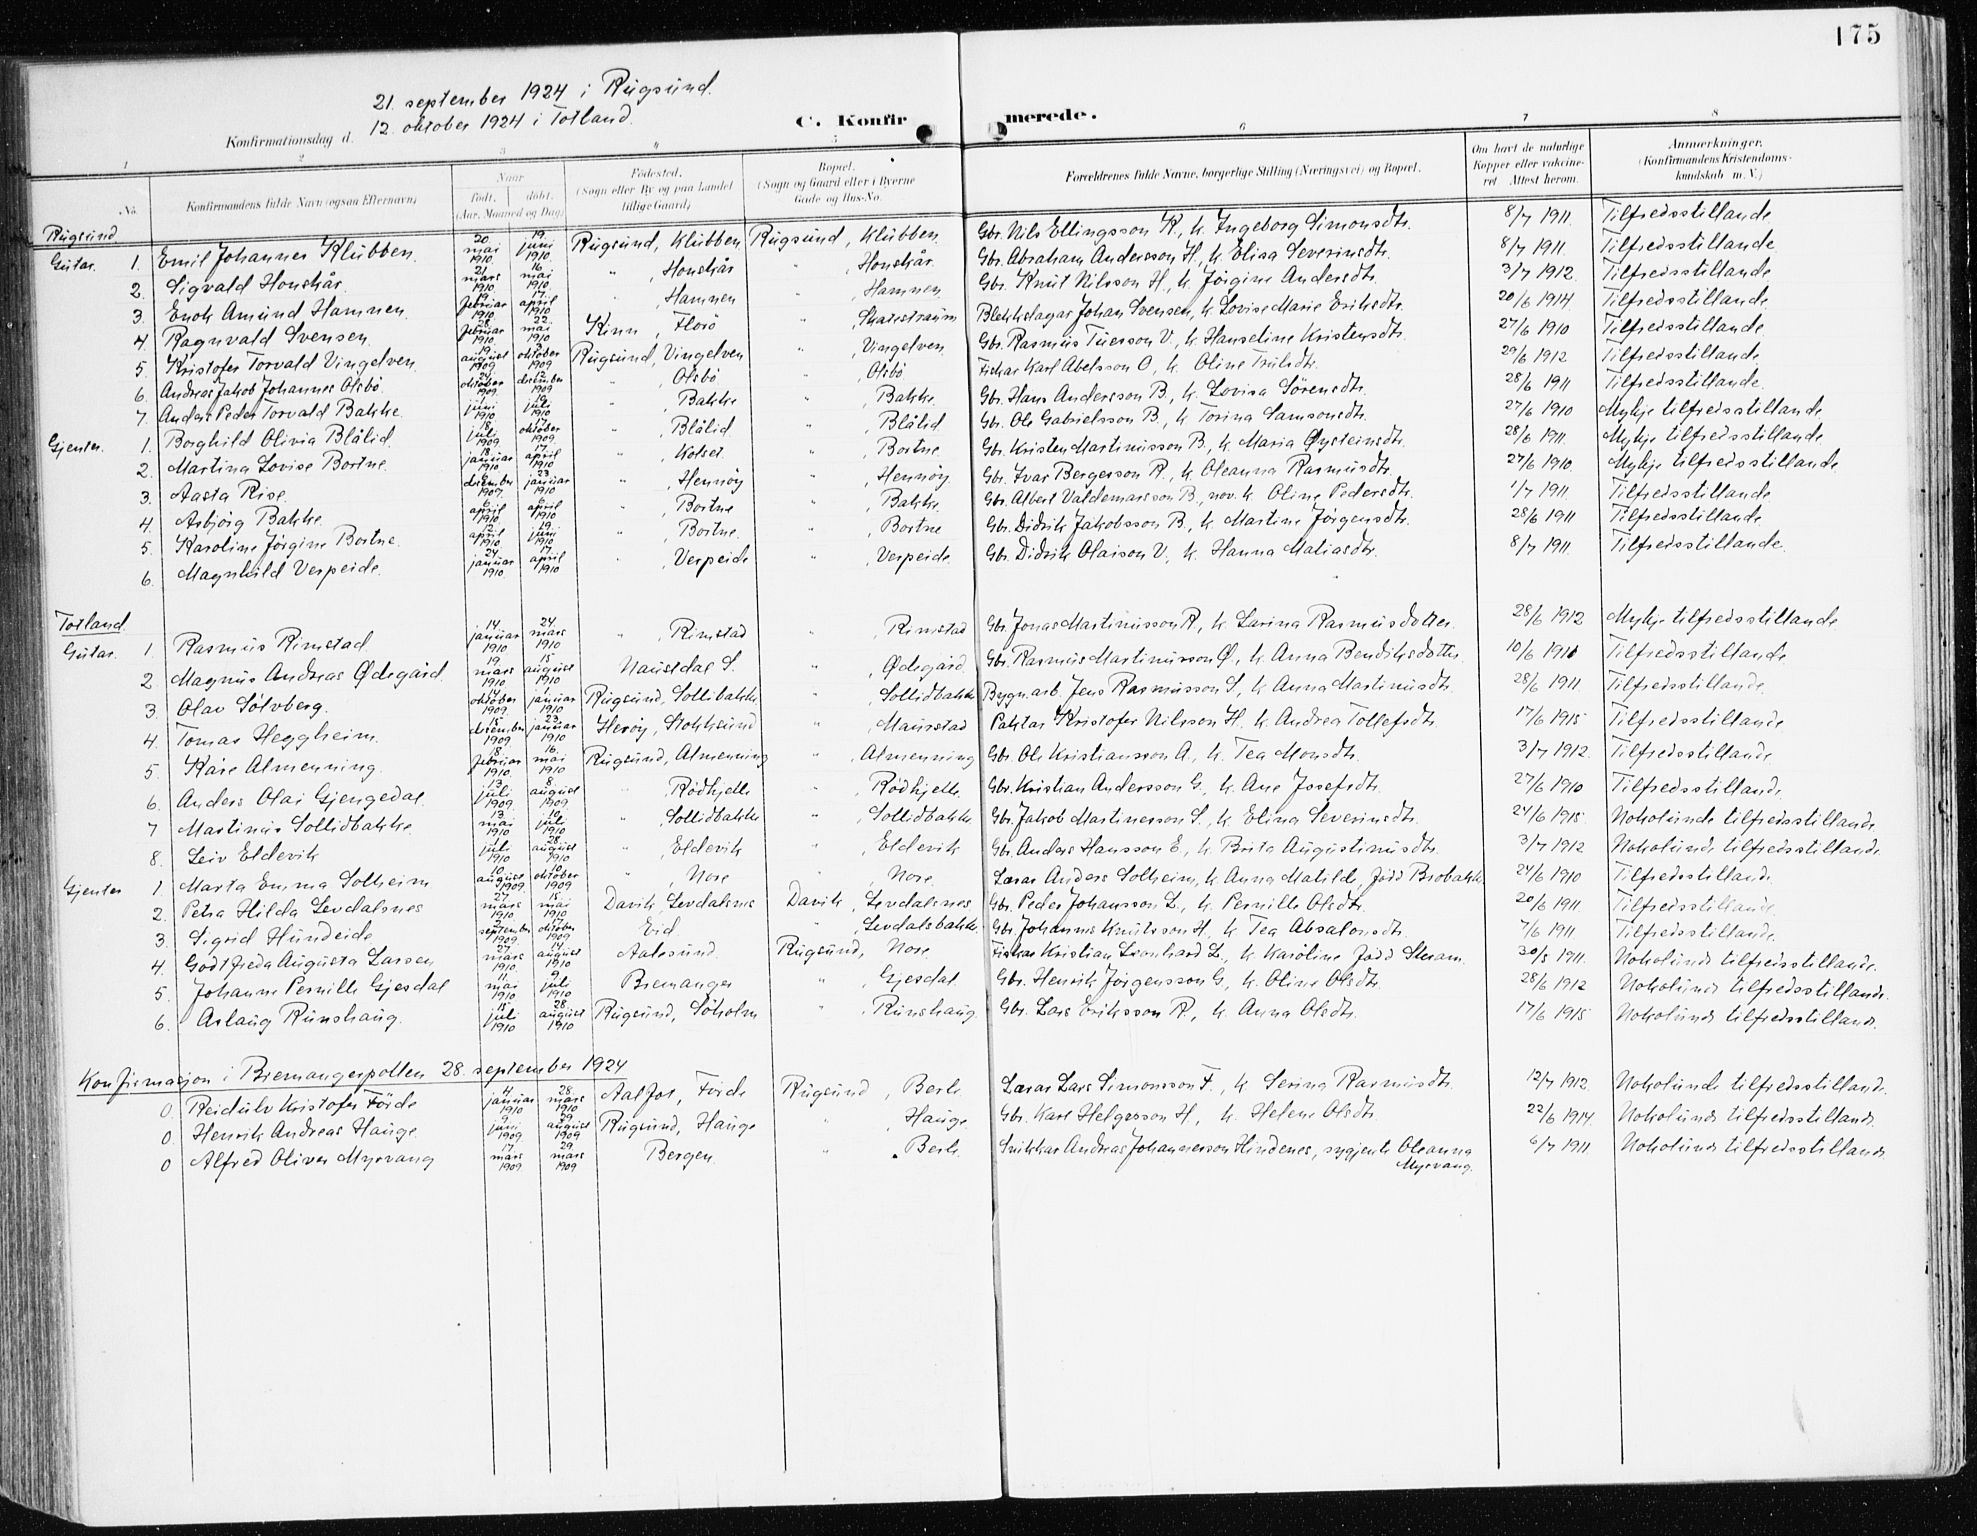 175
21. september 1924 i Rugsund.
Konfirmationsdag d. 12. oktober 1924 i Totland.
C. Konfirmerede.
1 2 3 4 5 6 7 8
No. Konfirmandens fulde Navn (ogsaa Efternavn) Naar født. døbt. (Aar, Maaned og Dag) Fødested. (Sogn eller By og paa Landet tillige Gaard) Bopæl. (Sogn og Gaard eller i Byerne Gade og Hus-No. Forældrenes fulde Navne, borgerlige Stilling (Næringsvei) og Bopæl. Om havt de naturlige Kopper eller vakcineret. Attest herom. Anmerkninger. (Konfirmandens Kristendomskundskab m. V.)
Rugsund
Gutar. 1. Emil Johannes Klubben 20 mai 1910 19 juni 1910 Rugsund, Klubben Rugsund, Klubben Gbr. Nils Ellingsson K, k. Ingeborg Simonsdtr. 8/7 1911. Tilfredsstillande
2. Sigvald Honskår 21 mars 1910 16 mai 1910 " , Honskår " , Honskår Gbr. Abraham Andersson H., k. Elisa Severinsdtr. 8/7 1911. Tilfredsstillande
3. Enok Amund Hamnen 19 februar 1910 17. april 1910 " , Hamnen " , Hamnen Gbr. Knut Nilsson H., k. Jørgine Andersdtr. 3/7 1912. Tilfredsstillande
4 Ragnvald Svensen. februar 1910 22 mai 1910 Kinn, Florö " , Skatestraum Blekkslagar Johan Svensen, k. Lovise Marie Eriksdtr. 20/6 1914 Tilfredsstillande
5. Kristofer Torvald Vingelven 19. august 1909 oktober 1909 Rugsund, Vingelven " , Vingelven Gbr. Rasmus Tuesson V., k. Hanseline Kristensdtr. 27/6 1910 Tilfredsstillande
6. Andreas Jakob Johannes Olsbö 24 oktober 1909 12 desember 1909 " , Olsbö " , Olsbö Fiskar Karl Abelsson O., k. Oline Trulsdtr. 29/6 1912 Tilfredsstillande
7. Anders Peder Torvald Bakke juni 1910 juli 1910 " , Bakke " , Bakke Gbr. Hans Andersson B., k. Lovisa Sörensdtr. 28/6 1911 Tilfredsstillande
Gjenter. 1. Borghild Olivia Blålid 18 juli 1909 17 oktober 1909. " , Blålid " , Blålid Gbr. Ole Gabrielsson B., k. Torina Samsonsdtr. 27/6 1910 Mykje tilfredsstillande
2. Martina Lovise Bortne 18 januar 1910 17. april 1910 " , Kolset " , Bortne Gbr. Kristen Martinusson B., k. Maria Øysteinsdtr. 28/6 1911. Mykje tilfredsstillande
3. Aasta Rise desember 1907. 23 januar 1910 " , Hennöy " , Hennöy Gbr. Ivar Bergesson R., k. Oleanna Rasmusdtr. 27/6 1910. Mykje tilfredsstillande
4. Asbjörg Bakke 6 april 1910 april 1910 " , Bortne " , Bakke Gbr. Albert Valdemarsson B., nov. k. Oline Pedersdtr. 1/7 1911. Tilfredsstillande
5. Karoline Jörgine Bortne 2 april 1910 19. juni 1910 " , Bortne " , Bortne Gbr. Didrik Jakobsson B., k. Martine Jörgensdtr. 28/6 1911 Tilfredsstillande
6. Magnhild Verpeide. 24 januar 1910. 17. april 1910 " , Verpeide " , Verpeide Gbr. Didrik Olaison V., k. Hanna Matiasdtr. 8/7 1911. Tilfredsstillande.
Totland.
Gutar. 1. Rasmus Rimstad 14. januar 1910 24. mars 1910 " , Rimstad " , Rimstad Gbr. Jonas Martinusson R., k. Larina Rasmusdotter. 28/6 1912 Mykje tilfredsstillande
2 Magnus Andreas Ødegård 19. mars 1910 15 august 1910 Naustdal S. " , Ødegård Gbr. Rasmus Martinusson Ø., k. Anna Bendiksdotter 10/6 1911 Tilfredsstillande
3. Olav Sölvberg. 14 oktober 1909 1 januar 1910 Rugsund, Sollibakke " , Sollidbakke Bygn.arb. Jens Rasmusson S., k. Anna Martinusdtr. 28/6 1911. Tilfredsstillande.
4. Tomas Heggheim 15 desember 1909 23 januar 1910 Heröy, Stokksund " , Maurstad Paktar Kristofer Nilsson H. k. Andrea Tollefsdtr. 17/6 1915 Tilfredsstillande
5. Kåre Almenning. 18. februar 1910. 16. mai 1910 Rugsund, Almenning " , Almenning Gbr. Ole Kristiansson A., k. Tea Monsdtr. 3/7 1912. Tilfredsstillande
6. Anders Olai Gjengedal 13 juli 1909. 8. august 1909. " , Rödkjelle " , Rödkjelle Gbr. Kristian Andersson G., k. Ane Josefsdtr. 27/6 1910 Tilfredsstillande.
7 Martinus Sollidbakke 13. mai 1910 10 juli 1910 " , Sollidbakke " , Sollidbakke Gbr. Jakob Martinusson S., k. Elina Severinsdtr. 24/6 1915. Nokolunde tilfredsstillande
8. Leiv Eldevik 1 juli 1910 28. august 1910 " , Eldevik " , Eldevik Gbr. Anders Hansson E, k. Brita Augustinusdtr. 3/7 1912 Nokolunde tilfredsstillande.
Gjenter 1 Marta Emma Solheim 10 august 1909. 10 oktober 1909 " , Nore " , Nore Lærar Anders Solheim, k. Anna Matilde, född Brobakke 24/6 1910 Tilfredsstillande
2. Petra Hilda Levdalsnes 27 mars 1910. 15 mai 1910 Davik, Levdalsnes Davik, Levdalsnes Gbr. Peder Johansson L., k. Pernille Olsdtr. 20/6 1911. Tilfredsstillande
3. Sigrid Hundeide 2 september 1909. 17 oktober 1909 Eid. " , Levdalsbakke Gbr. Johannes Knutsson H., k. Tea Absalonsdtr. 7/6 1911 Tilfredsstillande
4. Godtfreda Augusta Larsen 27. mars 1910. 14 august 1910 Aalesund. Rugsund, Nore Fiskar Kristian Leonhard L., k. Karoline född Skram. 30/5 1911. Nokolunde tilfredsstillande.
5. Johanne Pernille Gjesdal 11. mai 1910 9 juli 1910 Bremanger " , Gjesdal Gbr. Henrik Jörgensson G., k. Oline Olsdtr. 28/6 1912 Nokolunde tilfredsstillande.
6. Aslaug Runshaug. 15. juli 1910 28. august 1910 Rugsund, Söholm " , Runshaug Gbr. Lars Eriksson R., k. Anna Olsdtr. 17/6 1915 Nokolunde tilfredsstillande.
Konfirmasjon i Bremangerpollen 28. september 1924
0. Reidulv Kristofer Förde 4. januar 1910 28. mars 1910 Aalfot, Förde Rugsund, Berle Lærar Lars Simonsson F., k. Serina Rasmusdtr. 12/7 1912. Nokolunde tilfredsstillande.
0. Henrik Andreas Hauge. 9. juni 1909. 29 august 1909 Rugsund, Hauge " , Hauge Gbr. Karl Helgesson H., k. Helene Olsdtr. 22/6 1914. Nokolunde tilfredsstillande
0 Alfred Oliver Myrvang 17. mars 1909 29. mars 1909 Bergen " , Berle Snikkar Andreas Johannesson Hindenes, sygjente Oleanna Myrvang. 6/7 1911 Nokolunde tilfredsstillande